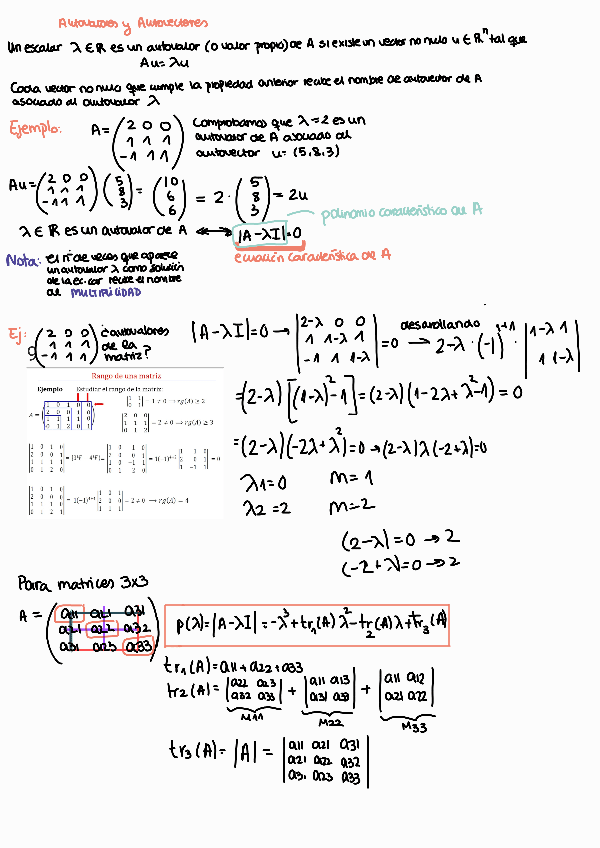 Autovalores y Autovectores
Un escalar λ ∈ R es un autovalor (o valor propio) de A si existe un vector no nulo u ∈ Rⁿ tal que
Au = λu
Cada vector no nulo que cumple la propiedad anterior recibe el nombre de autovector de A
asociado al autovalor λ
Ejemplo: A = (2 0 0; 1 1 1; -1 1 1) Comprobamos que λ=2 es un
autovalor de A asociado al
autovector u = (5,8,3)
Au = (2 0 0; 1 1 1; -1 1 1) (5; 8; 3) = (10; 6; 6) = 2 · (5; 8; 3) = 2u
polinomio característico de A
λ ∈ R es un autovalor de A ⟷ |A-λI|=0
ecuación característica de A
Nota: el nº de veces que aparece
un autovalor λ como solución
de la ec. car recibe el nombre
de MULTIPLICIDAD
Ej: (2 0 0; 1 1 1; -1 1 1) ¿autovalores
de la
matriz?
|A-λI|=0 → |2-λ 0 0; 1 1-λ 1; -1 1 1-λ| = 0 desarrollando → 2-λ·(-1)¹⁺¹ · |1-λ 1; 1 1-λ|
=(2-λ)[(1-λ)²-1]=(2-λ)(1-2λ+λ²-1) = 0
=(2-λ)(-2λ+λ²)=0→(2-λ)λ(-2+λ)=0
λ1=0 m=1
λ2=2 m=2
(2-λ)=0 → 2
(-2+λ)=0→2
Rango de una matriz
Ejemplo Estudiar el rango de la matriz
Para matrices 3x3
A = (a11 a21 a31; a21 a22 a32; a31 a23 a33)
p(λ)=|A-λI|=-λ³+tr₁(A)λ²-tr₂(A)λ+tr₃(A)
tr₁(A)=a11+a22+a33
tr₂(A)=|a22 a23; a32 a33| + |a11 a13; a31 a33| + |a11 a12; a21 a22|
M11 M22 M33
tr₃(A)=|A|=|a11 a21 a31; a21 a22 a32; a31 a23 a33|